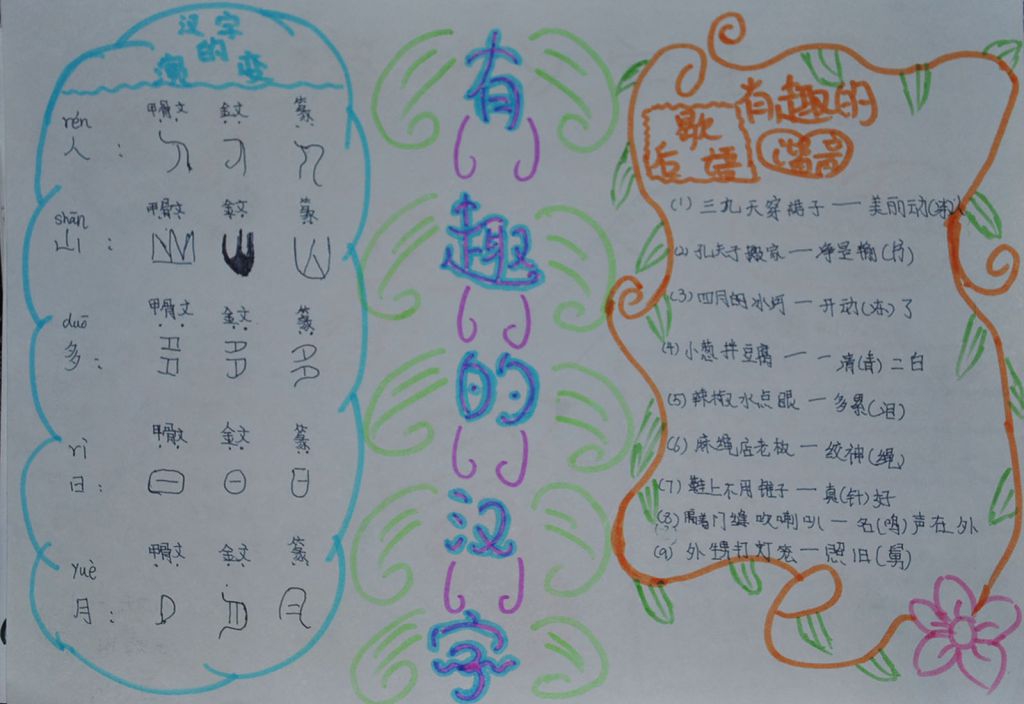 汉字
的
演变
rén 甲骨文 金文 篆
人：
shān 甲骨文 金文 篆
山：
duō 甲骨文 金文 篆
多：
rì 甲骨文 金文 篆
日：
yuè 甲骨文 金文 篆
月：
有
趣
的
汉
字
有趣的
谐音
歇
后语
(1) 三九天穿裙子——美丽动(冻)人
(2) 孔夫子搬家——净是输(书)
(3) 四月的冰河——开动(冻)了
(4) 小葱拌豆腐——一清(青)二白
(5) 辣椒水点眼——多累(泪)
(6) 麻绳店老板——纹神(绳)
(7) 鞋上不用锥子——真(针)好
(8) 隔着门缝吹喇叭——名(鸣)声在外
(9) 外甥打灯笼——照旧(舅)